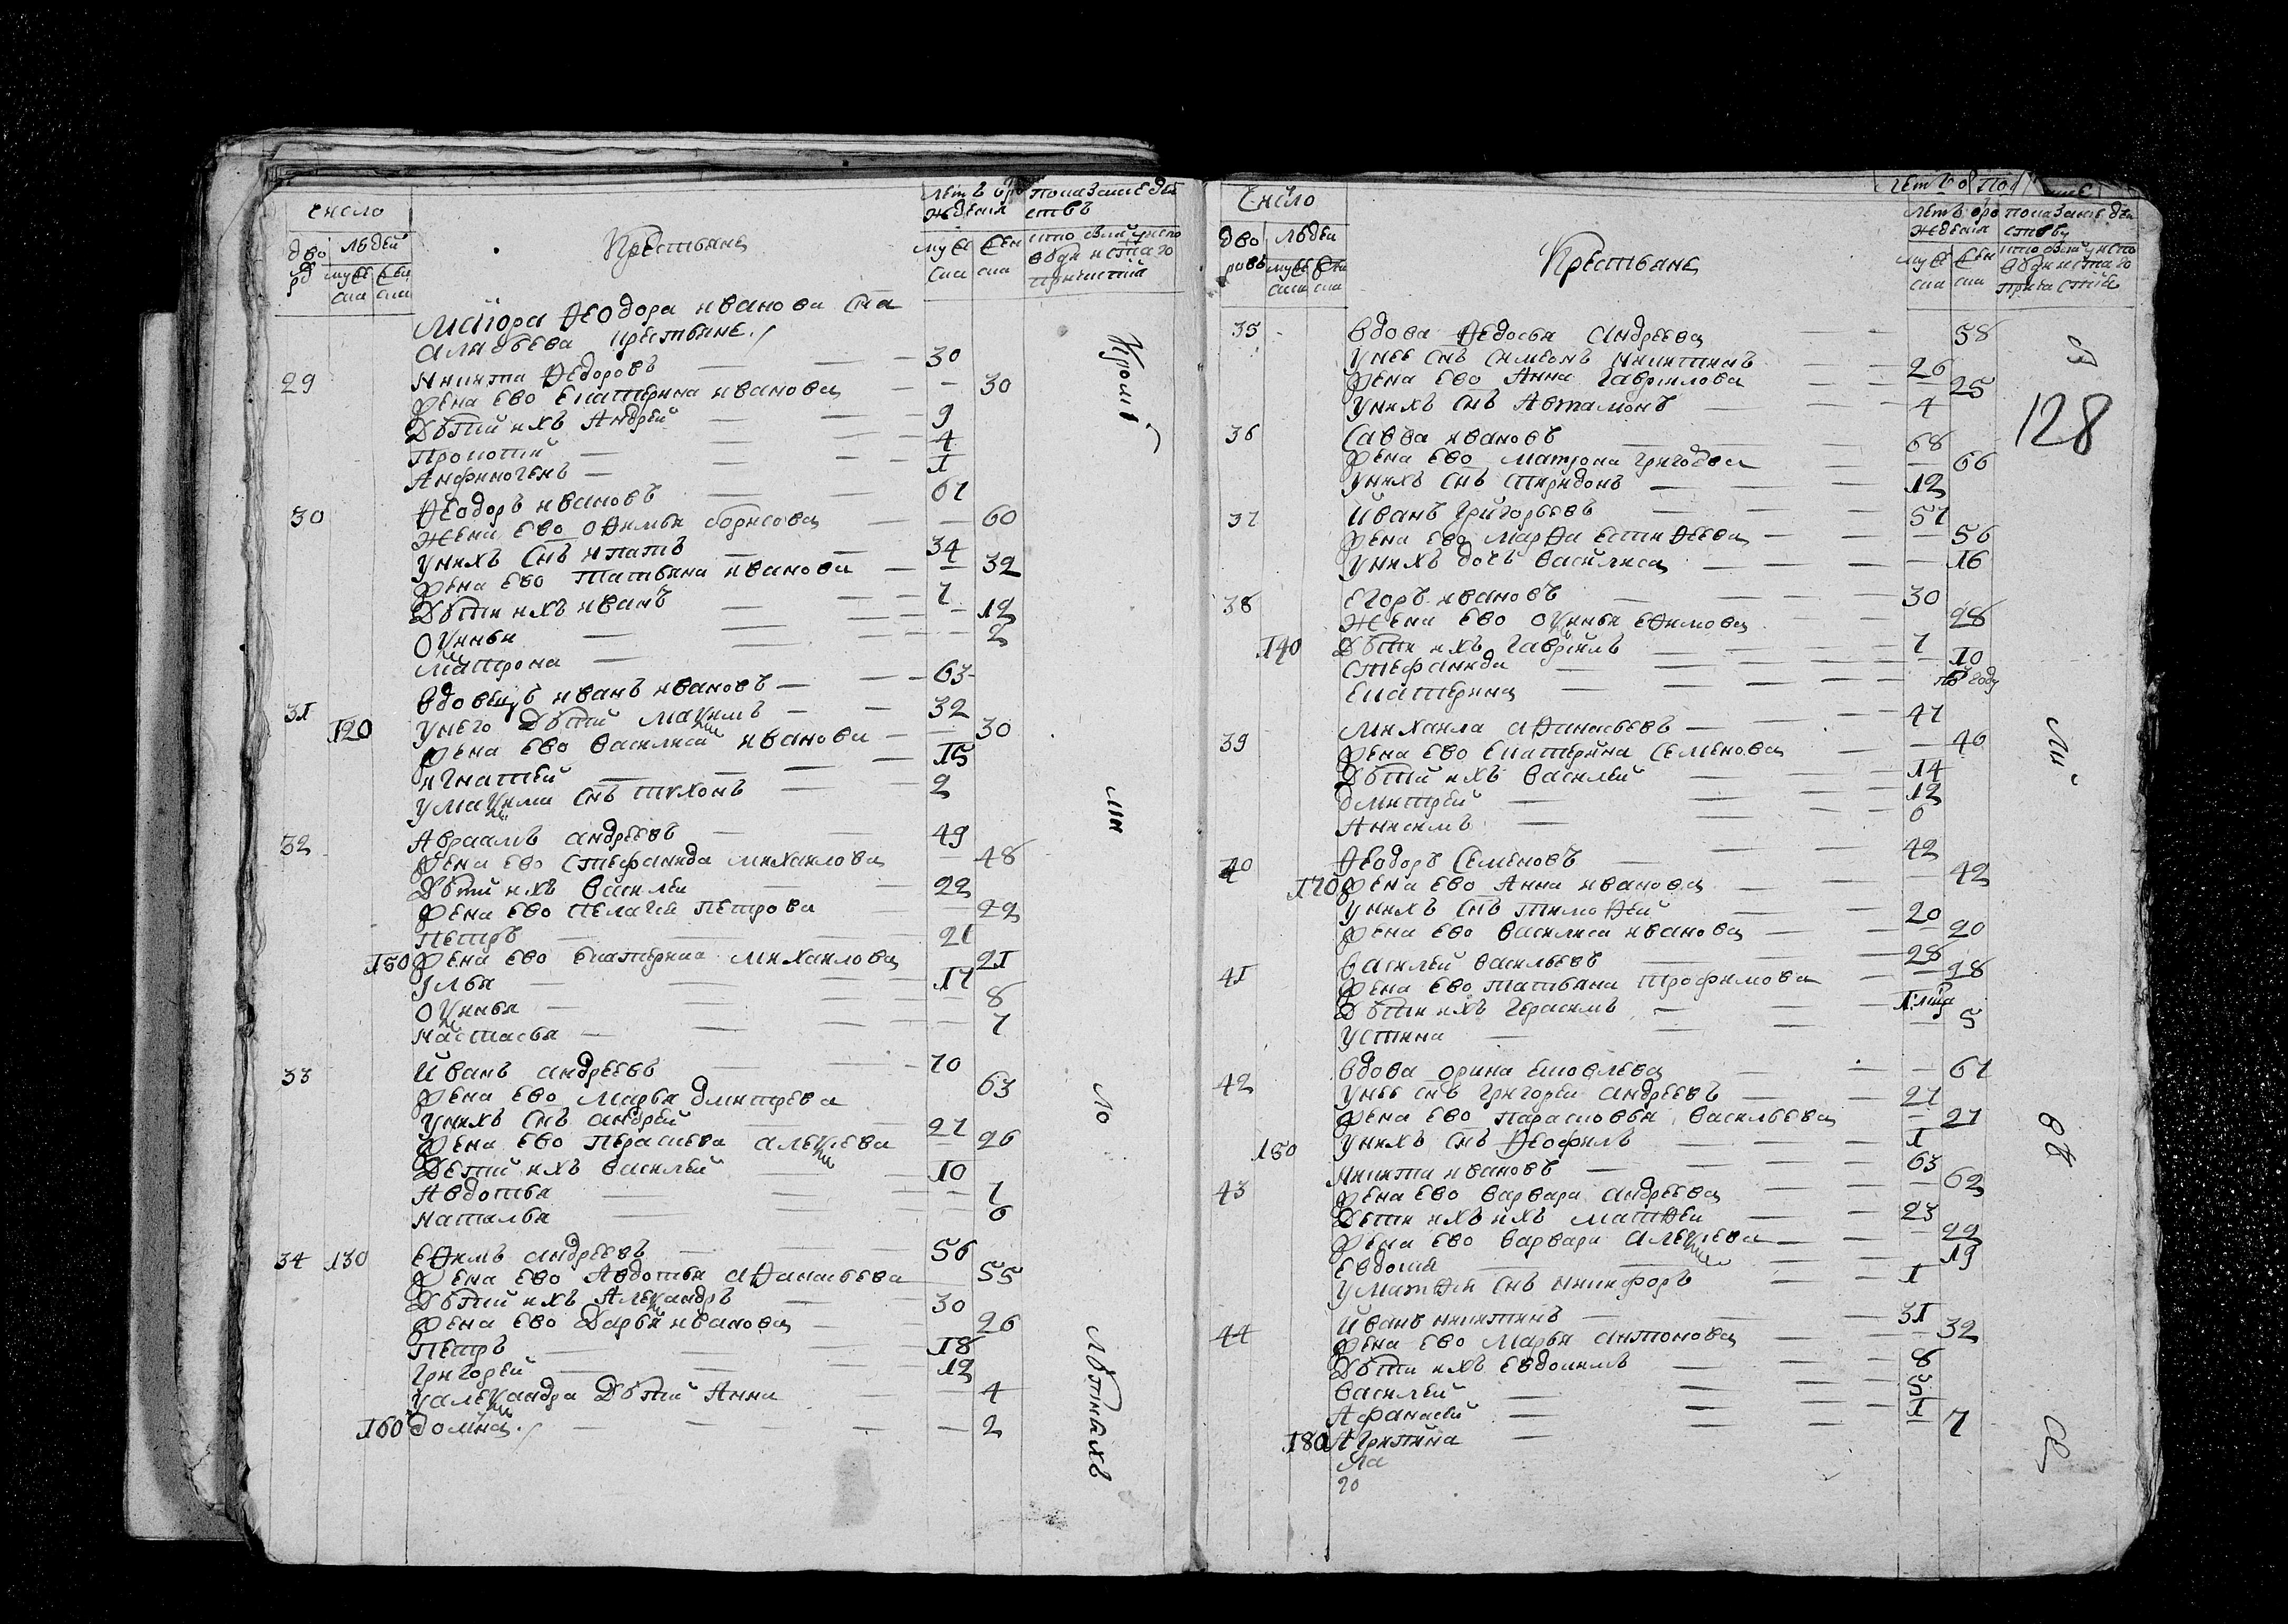 Число
дворовъ
людей
мужеска
женска
Крестьяне
летъ от рождения
мужеска
женска
Маиора Ѳеодора иванова сна
крестьяне
29 Никита Ѳедоровъ 30
жена ево Екатерина иванова 30
Дѣтии ихъ Андрей 9
Прокопий 4
Анфиногенъ 1
30 Ѳеодоръ ивановъ 61
жена ево оѳимья борисова 60
уних снъ ипатъ 34
жена ево татьяна иванова 32
Дѣти ихъ иванъ 7
Оулиѧна 12
Матрона 2
31 Вдовецъ иванъ ивановъ 63
120 унего дѣтии Маѯимъ 32
жена ево василиса иванова 30
игнатей 15
умаѯима снъ тихонъ 2
32 Авраамъ андреевъ 49
жена ево стефанида михаилова 48
Дѣтии ихъ василеи 22
жена ево пелагея петрова 22
Петръ 21
150 жена ево екатерина михаилова 21
Илья 17
8
настасья 7
33 Иванъ андреевъ 70
жена ево марья дмитрева 63
унихъ снъ андрей 27
жена ево алеѯева 26
Детии ихъ василей 10
Авдотья 7
наталья 6
34 130 еѳимъ андреевъ 56
жена ево Авдотья аѳанасьева 55
Дѣтии ихъ Алеѯандръ 30
жена ево Дарья иванова 26
Петръ 18
Григорей 12
уалеѯандра Дѣтии Анна 4
160 домна 2
Кромѣ
Ма
ло
лѣтныхъ
Число
дворовъ
людей
мужеска
женска
Крестьяне
летъ от рождения
мужеска
женска
128
35 вдова Ѳедосья андреева 58
унее снъ симеонъ никитинъ 26
жена ево Анна гаврилова 25
унихъ снъ Автамонъ 4
36 Савва ивановъ 68
жена ево матрона григорева 66
унихъ снъ спиридонъ 12
37 Иванъ григорьевъ 57
жена ево марѳа естиѳеева 56
унихъ дочь василиса 16
38 егоръ ивановъ 30
жена ево еѳимова 28
140 дѣти ихъ гаврилъ 7
стефанида 10
екатерина
39 михаила аѳанасьевъ 47
жена ево екатерина семенова 46
Дѣтии ихъ василей 14
дмитрей 12
Анисимъ 6
40 Ѳеодоръ семеновъ 42
170 жена ево Анна иванова 42
унихъ снъ тимоѳей 20
жена ево василиса иванова 20
41 василей васильевъ 28
жена ево татьяна трофимова 28
Дѣти ихъ герасимъ
устина 5
42 вдова орина яковлева 61
унее снъ григорей андреевъ 27
жена ево парасковья васильева 27
150 унихъ снъ Ѳеофилъ 1
43 никита ивановъ 63
жена ево варвара андреева 62
Дети ихъ ихъ матѳеи 23
жена ево варвара алеѯеева 22
евдокия 19
уматѳея снъ никифоръ 1
44 Иванъ никитинъ 31
жена ево марья антонова 32
Дѣти ихъ евдокимъ 8
василей 5
Афанасей 1
180 Агрипина 7